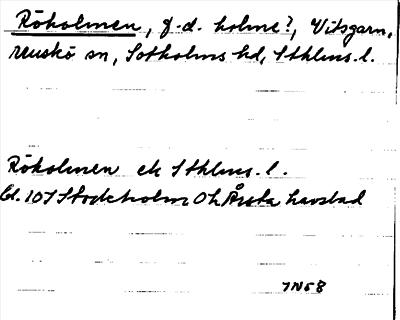 Rökolmen, f.d. holme?, Vitsgarn,
Muskö sn, Sotholms hd, Sthlms.l.
Rökolmen ek Sthlms.l.
bl. 107 Stockholm O h Årsta havsbad
7N58